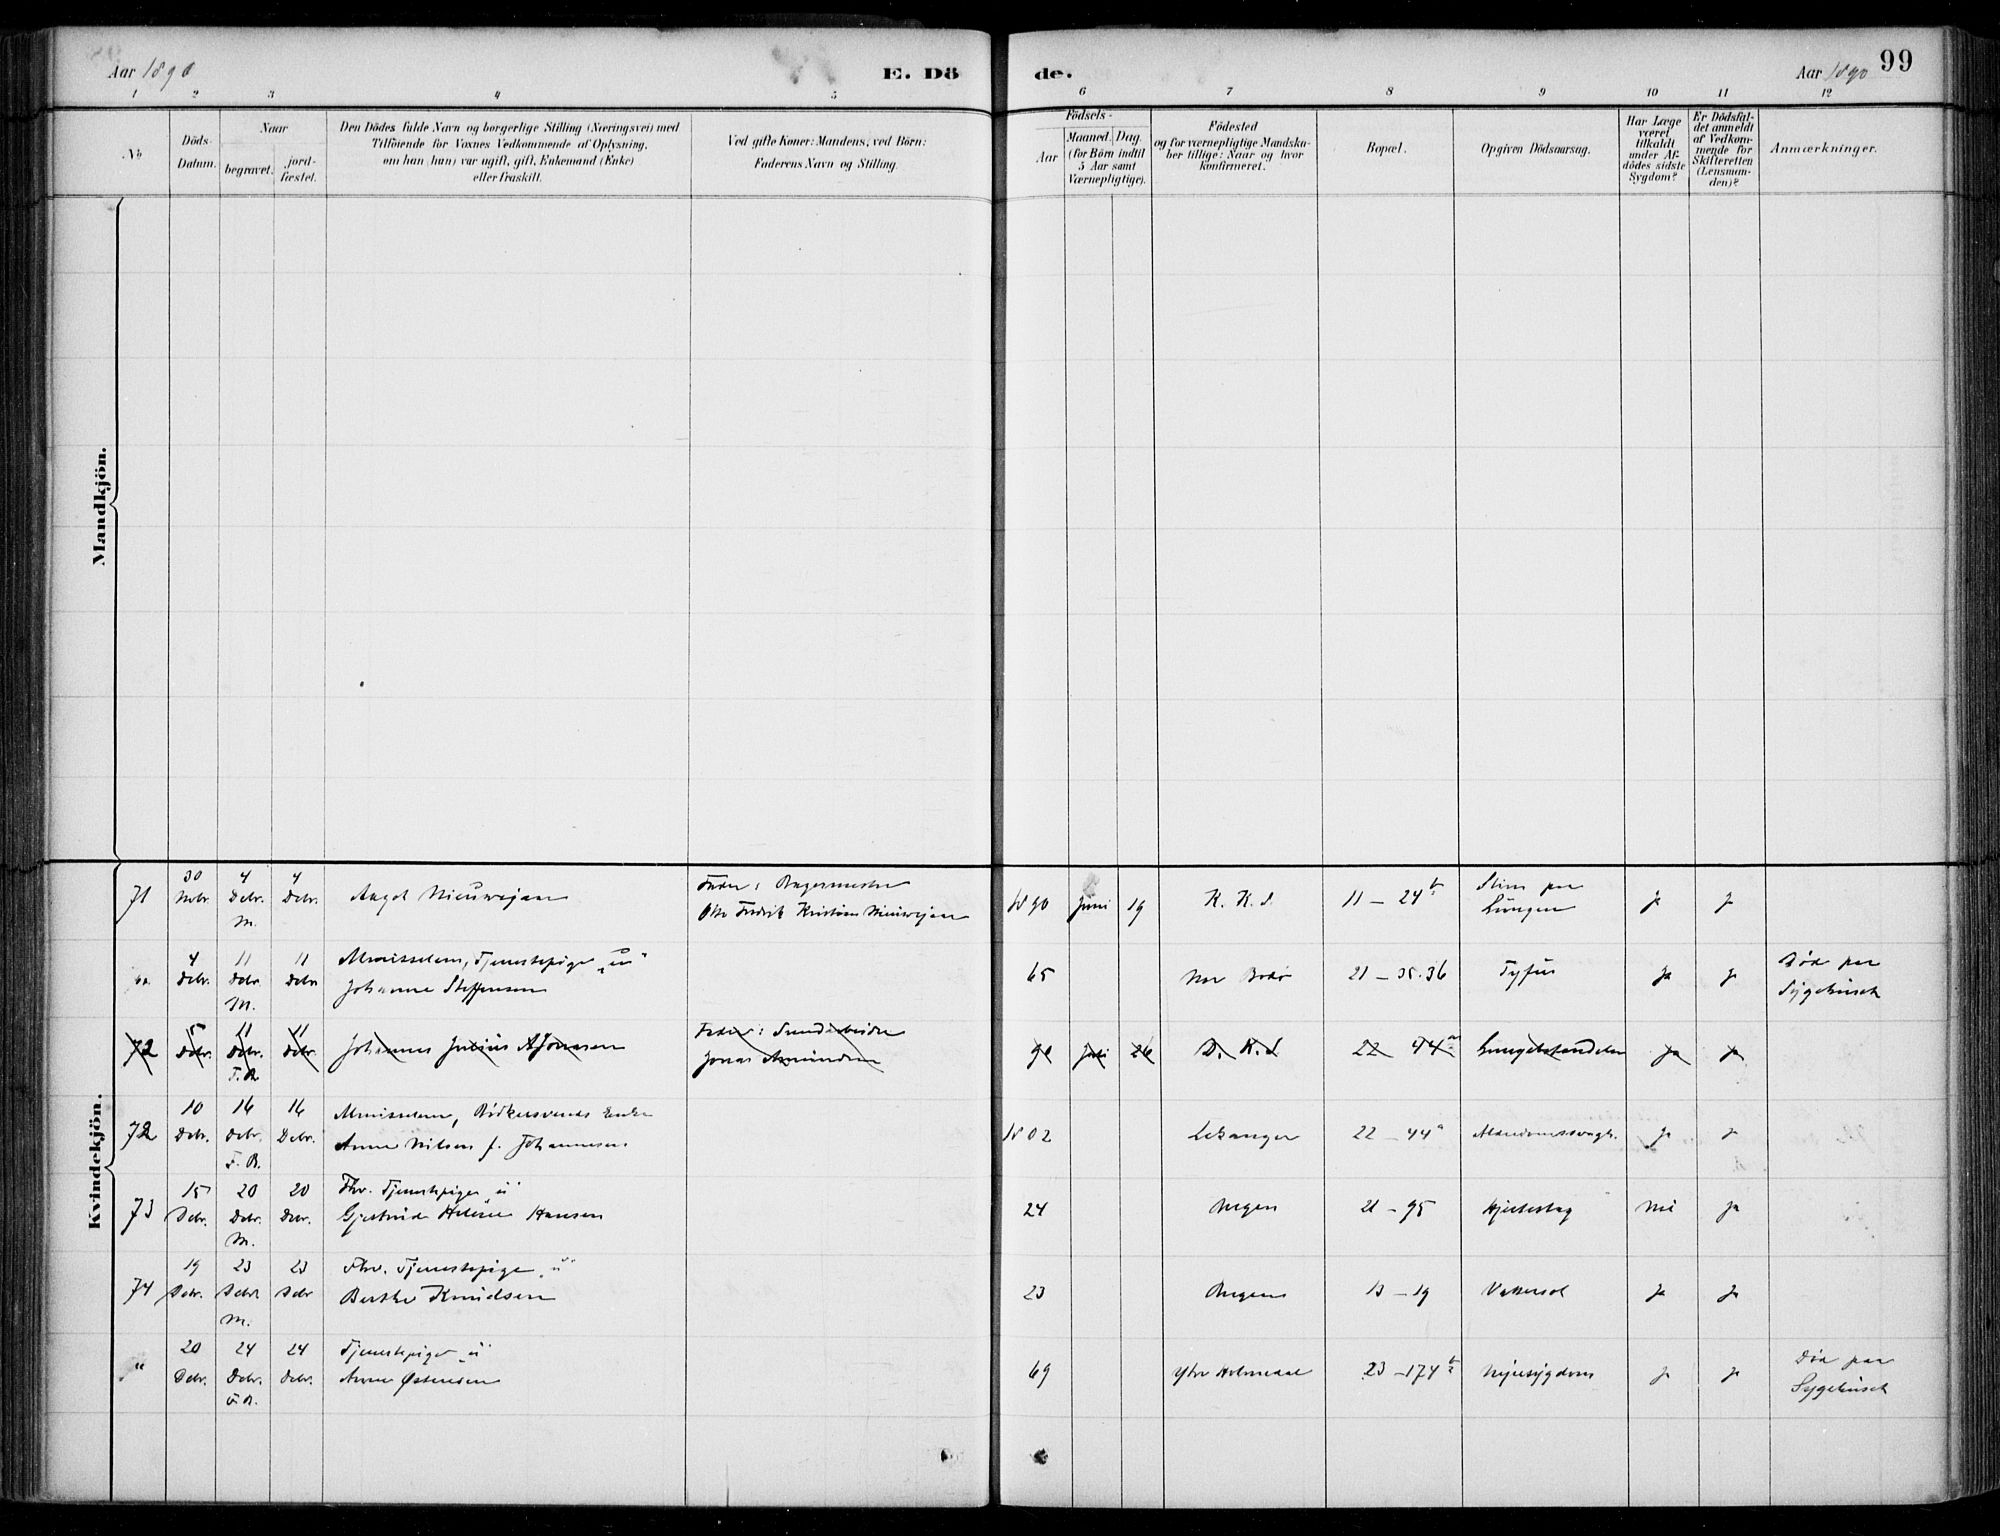 Aar 1890
E. Dö
de.
Aar 1890
99
1 2 3 4 5
6 7 8 9 10 11 12
No
Döds-
Datum.
Naar
begravet.
jord-
fæstet.
Den Dödes fulde Navn og borgerlige Stilling (Næringsvei) med
Tilföiende for Voxnes Vedkommende af Oplysning,
om han (hun) var ugift, gift, Enkemand (Enke)
eller fraskilt.
Ved gifte Koner: Mandens; ved Börn:
Faderens Navn og Stilling.
Födsels-
Aar
Maaned.
Dag.
(for Börn indtil
5 Aar samt
Værnepligtige).
Födested
og for værnepligtige Mandska-
ber tillige: Naar og hvor
konfirmeret.
Bopæl.
Opgiven Dödsaarsag.
Har Læge
været
tilkaldt
under Af-
dödes sidste
Sygdom?
Er Dödsfal-
det anmeldt
af Vedkom-
mende for
Skifteretten
(Lensman-
den)?
Anmærkninger.
Mandkjön.
Kvindekjön.
71
30 Novbr.
4 Debr. M.
4 Debr.
Angot Nieuwejaar
Fader: Bagermester
Otto Fredrik Kristian Nieuwejaar
1890 Juni 19
K. K. S.
11 – 24 b
Slim paa
Lungen
ja
ja
4 Debr.
11 Debr. M.
11 Debr.
Almisselem, Tjenestepige "u"
Johanne Steffensen
65
Nor Bodö
21 – 35.36
Tyfus
ja
ja
Död paa
Sygehuset
72
5 Debr.
11 Debr. F.R.
11 Debr.
Johannes Julius A Jonassen
Fader:
Jonas Amundsen
90 Juli 26
D. K. S
22 44 a
Lungebetændelse
ja
ja
72
10 Debr.
16 Debr. F.R.
16 Debr.
Almisselem, Bödkersvends Enke
Anne Nilsen f. Johannesen
1802
Lekanger
22 – 44 a
Alderdomssvagh.
ja
ja
73
15 Debr.
20 Debr. M.
20 Debr.
Fhv. Tjenestepige "u"
Gjertrud Helene Hansen
24
Bergen
21 – 95
Hjerteslag
nei
ja
74
19 Debr.
23 Debr. M.
23 Debr
Fhv. Tjenestepige "u"
Berthe Knudsen
23
Bergen
13 – 19
Vattersot
ja
ja
"
20 Debr.
24 Debr.
24 Debr.
Tjenestepige "u"
Anne Østensen
69
Ytre Holmedal
23 – 174 b
Nyresygdom
ja
ja
Död paa
Sygehuset